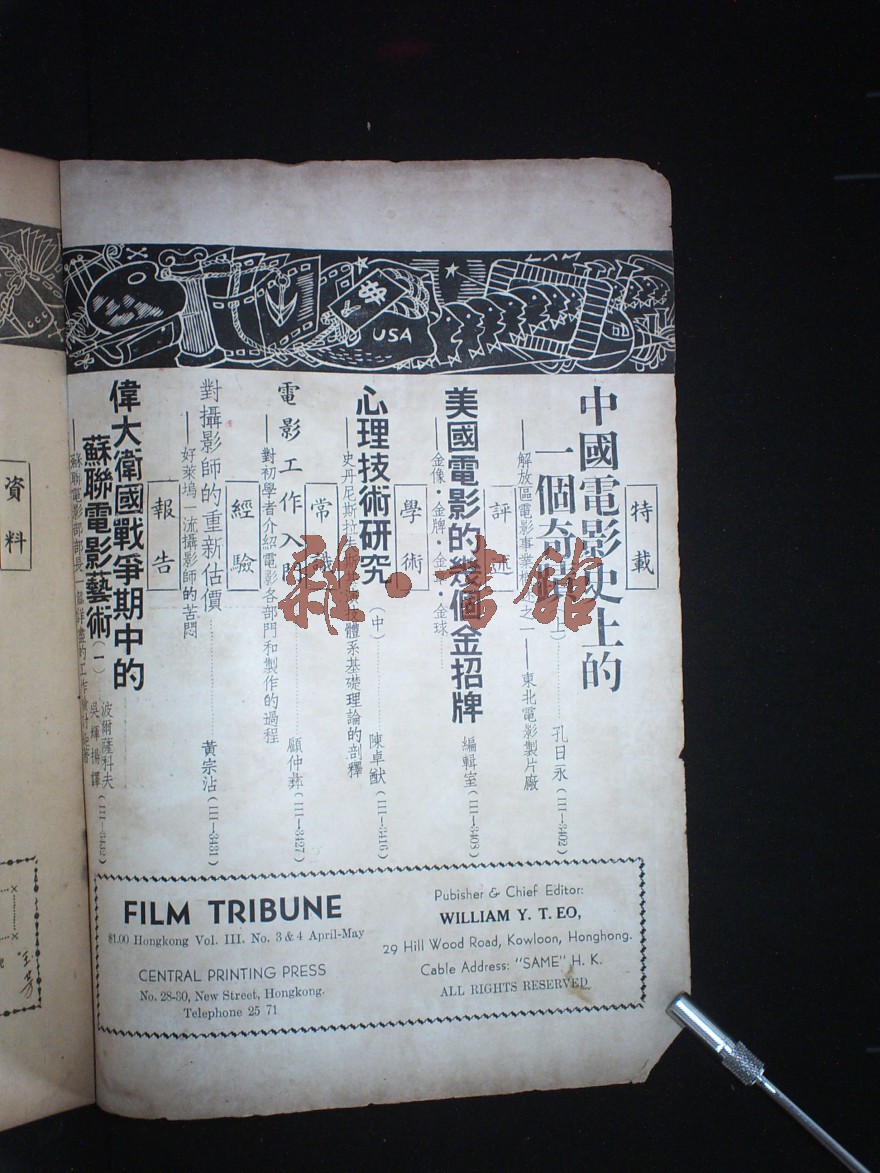 USA
特載
中國電影史上的
一個奇蹟（上）⋯⋯孔日永（111—3402）
——解放區電影事業 之一——東北電影製片廠
評述
美國電影的幾個金招牌 編輯室（111—3403）
——金像·金牌·金 ·金球⋯⋯
學術
心理技術研究（中）⋯⋯陳卓猷（111—3416）
——史丹尼斯拉 體系基礎理論的剖釋
常識
電影工作入門⋯⋯顧仲彝（111—3427）
——對初學者介紹電影各部門和製作的過程
經驗
對攝影師的重新估價⋯⋯黃宗沾（111—3431）
——好萊塢一流攝影師的苦悶
報告
偉大衛國戰爭期中的
蘇聯電影藝術（一） 波爾薩科夫
吳輝揚譯
——蘇聯電影部部長一 詳盡的工作
資料
FILM TRIBUNE
$1.00 Hongkong Vol. III. No. 3 & 4 April-May
CENTRAL PRINTING PRESS
No. 28-30, New Street, Hongkong.
Telephone 25 71
Pubisher & Chief Editor:
WILLIAM Y. T. EO,
29 Hill Wood Road, Kowloon, Honghong.
Cable Address: "SAME" H. K.
ALL RIGHTS RESERVED
雜·書館